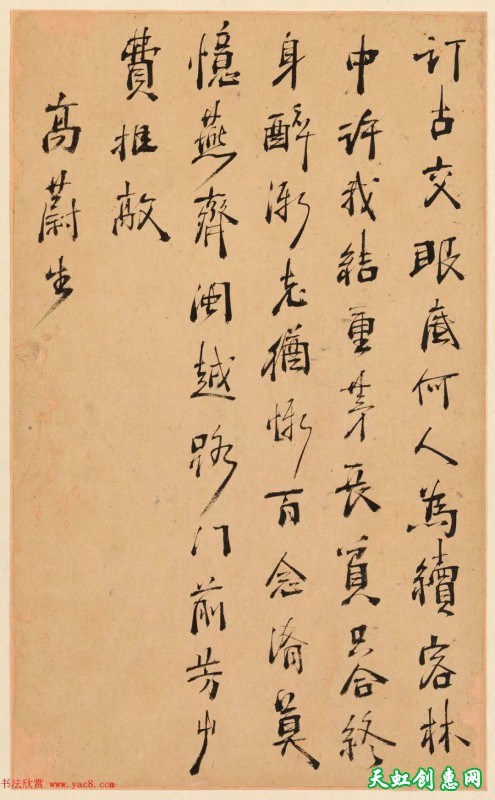 訂古交眼底何人為續林
中許我結重茅長貧只合終
身醉漸老猶慚百念淆莫
憶燕齊閩越路門前芳艸
費推敲
高蔚生
书法欣赏 www.yac8.com
天虹创惠网